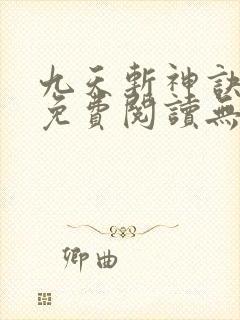 九天斬神訣
免費閱讀無
卿曲